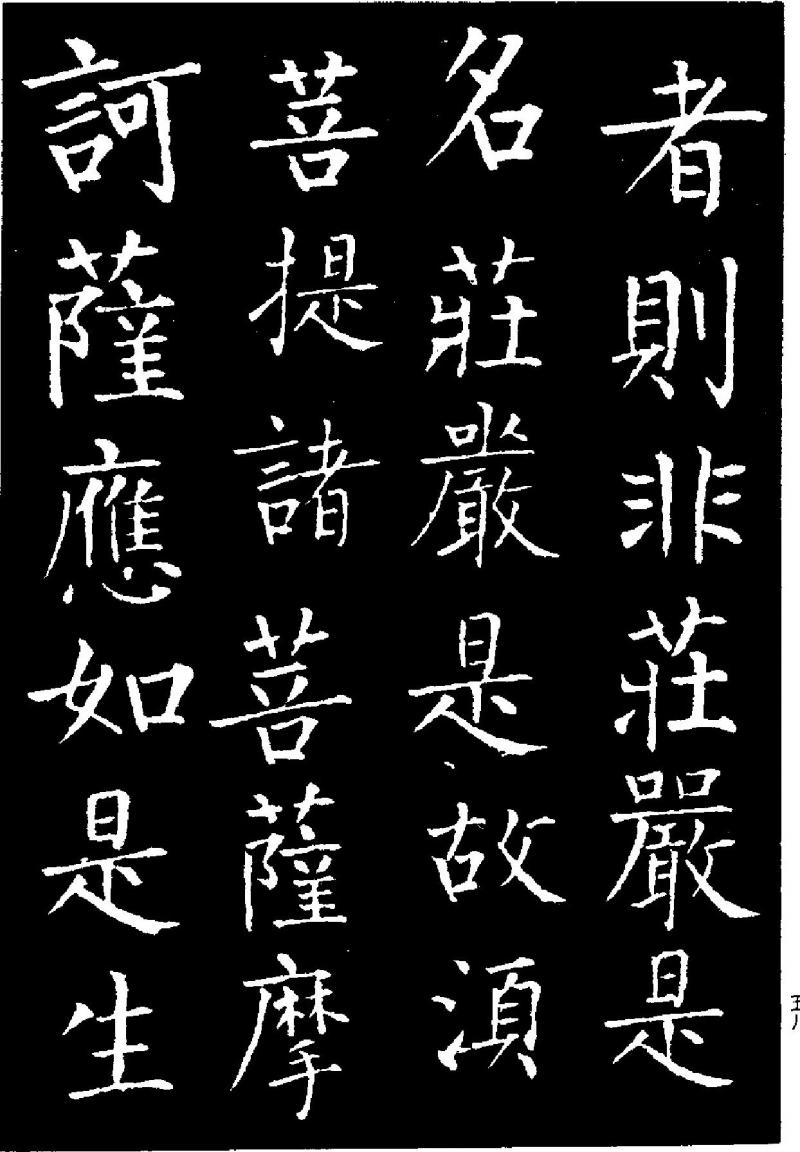 者則非莊嚴是
名莊嚴是故湏
菩提諸菩薩摩
訶薩應如是生
五八